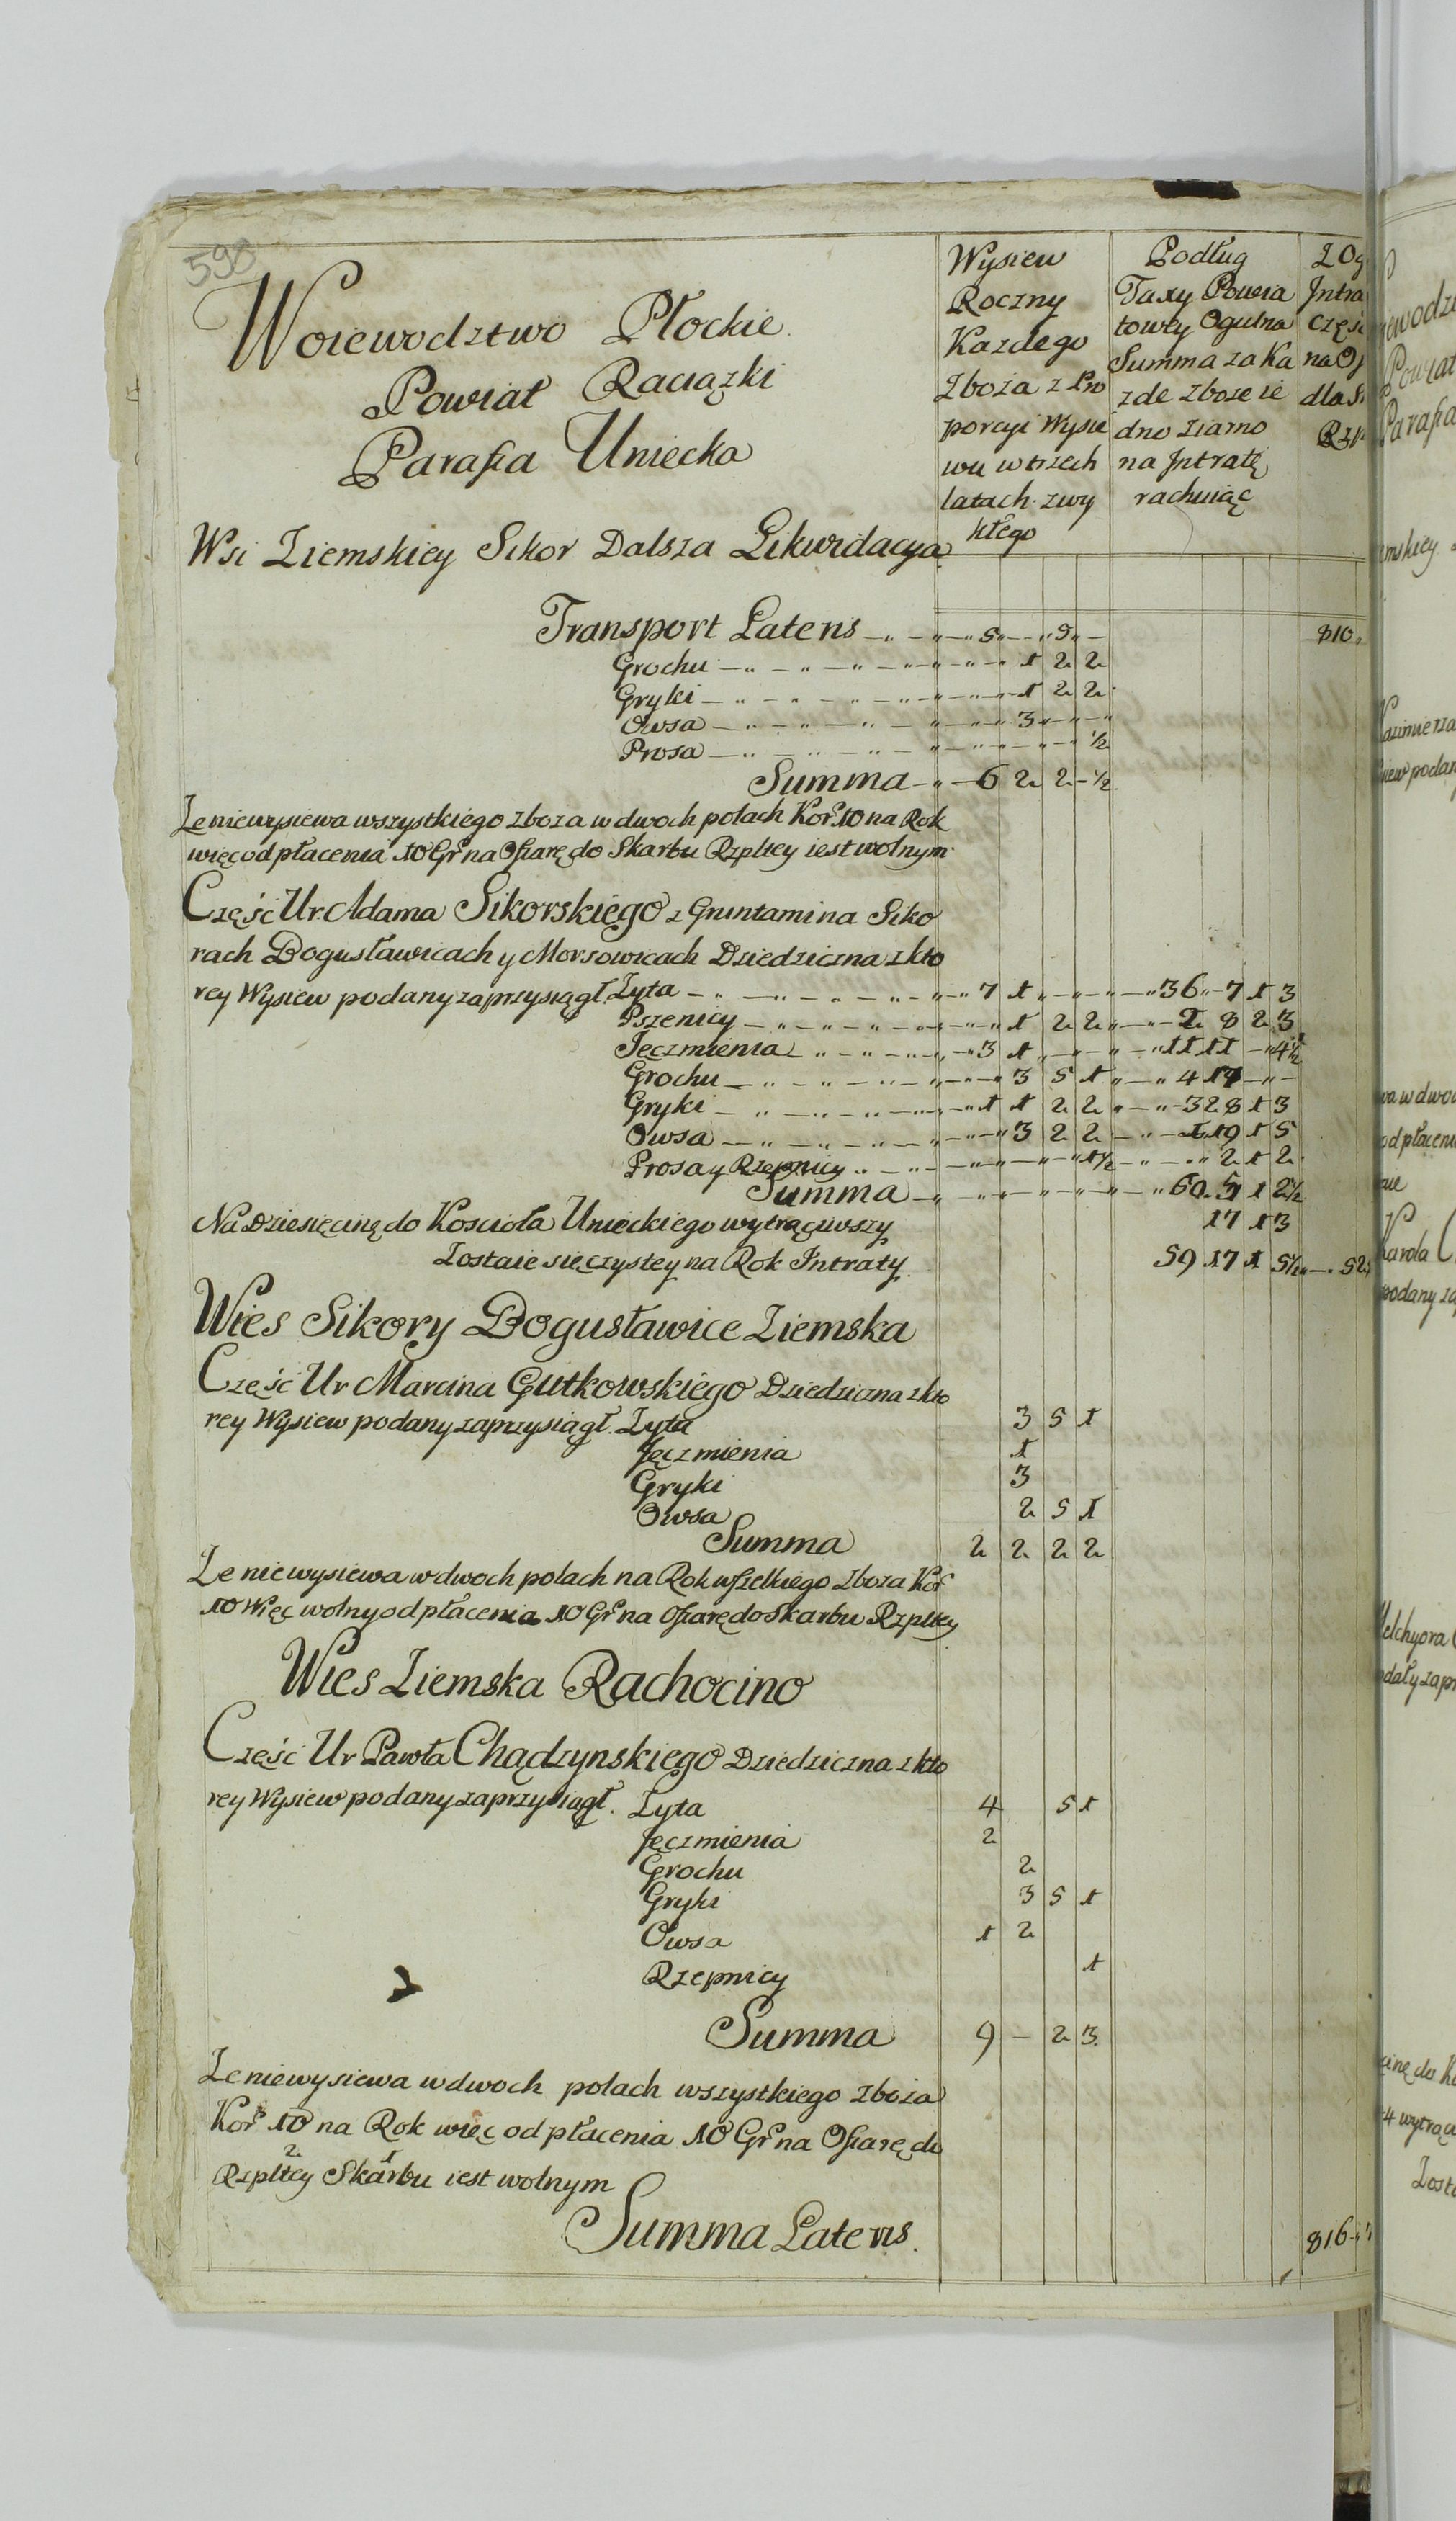 598
Woiewodztwo Płockie
Powiat Raciązki
Parafia Uniecka
Wysiew
Roczny
Kazdego
Zboza z Pro
porcyi Wysie
wu w trzech
latach zwy
kłego
Podług
Taxy Powia
towey Ogulna
Summa za Ka
zde Zboze ie
dno ziarno
na Jntratę
rachuiąc
Wsi Ziemskiey Sikor Dalsza Likwidacyia
Transport Latens 5 5 810
Grochu 1 2 2
Gryki 1 2 2
Owsa 3
Prosa ½
Summa 6 2 2 ½
Ze niewysiewa wszystkiego zboza w dwoch polach Kor 10 na Rok
więc od płacenia 10 Gr na Ofiarę do Skarbu Rzpltey iest wolnym
Część Ur Adama Sikorskiego z Gruntami na Siko
rach Bogusławicach y Morsowicach Dziedziczna z kto
rey Wysiew podany zaprzysiągł. Zyta 7 1 36 7 1 3
Pszenicy 1 2 2 2 8 2 3
Jęczmienia 3 1 11 11 4½
Grochu 3 5 1 4 17
Gryki 1 1 2 2 3 28 1 3
Owsa 3 2 2 1 19 1 5
Prosa y Rzepnicy 1½ 2 1 2
Summa 60 5 1 2½
Na Dziesięcinę do Koscioła Unieckiego wytrąciwszy 17 1 3
Zostaie się czystey na Rok Jntraty 59 17 1 5½ 52
Wies Sikory Bogusławice Ziemska
Część Ur Marcina Gutkowskiego Dziedziczna z kto
rey Wysiew podany zaprzysiągł. Zyta 3 5 1
Jęczmienia 1
Gryki 3
Owsa 2 5 1
Summa 2 2 2 2
Ze niewysiewa w dwoch polach na Rok wszelkiego zboza Kor
10 Więc wolny od płacenia 10 Gr na Ofiarę do Skarbu Rzpltey
Wies Ziemska Rachocino
Część Ur Pawła Chądzynskiego Dziedziczna z kto
rey Wysiew podany zaprzysiągł. Zyta 4 5 1
Jęczmienia 2
Grochu 2
Gryki 3 5 1
Owsa 1 2
Rzepnicy 1
Summa 9 – 2 3
Ze niewysiewa w dwoch polach wszystkiego zboza
Kor 10 na Rok więc od płacenia 10 Gr na Ofiarę do
Rzpltey Skarbu iest wolnym
Summa Latens 816